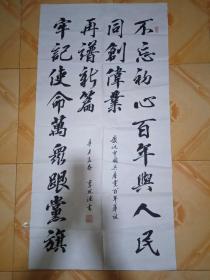 不忘初心百年與人民
同創偉業
慶祝中國共產黨百年華誕
牢記使命萬眾跟黨旗
再譜新篇
辛丑